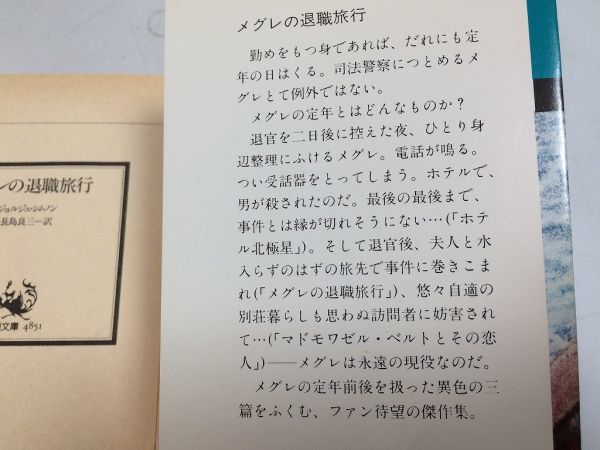 メグレの退職旅行
勤めをもつ身であれば、だれにも定
年の日はくる。司法警察につとめるメ
グレとて例外ではない。
メグレの定年とはどんなものか？
退官を二日後に控えた夜、ひとり身
辺整理にふけるメグレ。電話が鳴る。
つい受話器をとってしまう。ホテルで、
男が殺されたのだ。最後の最後まで、
事件とは縁が切れそうにない…(「ホテ
ル北極星」)。そして退官後、夫人と水
入らずのはずの旅先で事件に巻きこま
れ(「メグレの退職旅行」)、悠々自適の
別荘暮らしも思わぬ訪問者に妨害され
て…(「マドモワゼル・ベルトとその恋
人」)――メグレは永遠の現役なのだ。
メグレの定年前後を扱った異色の三
篇をふくむ、ファン待望の傑作集。
レの退職旅行
ジョルジュ・シムノン
長島良三＝訳
文庫 4851